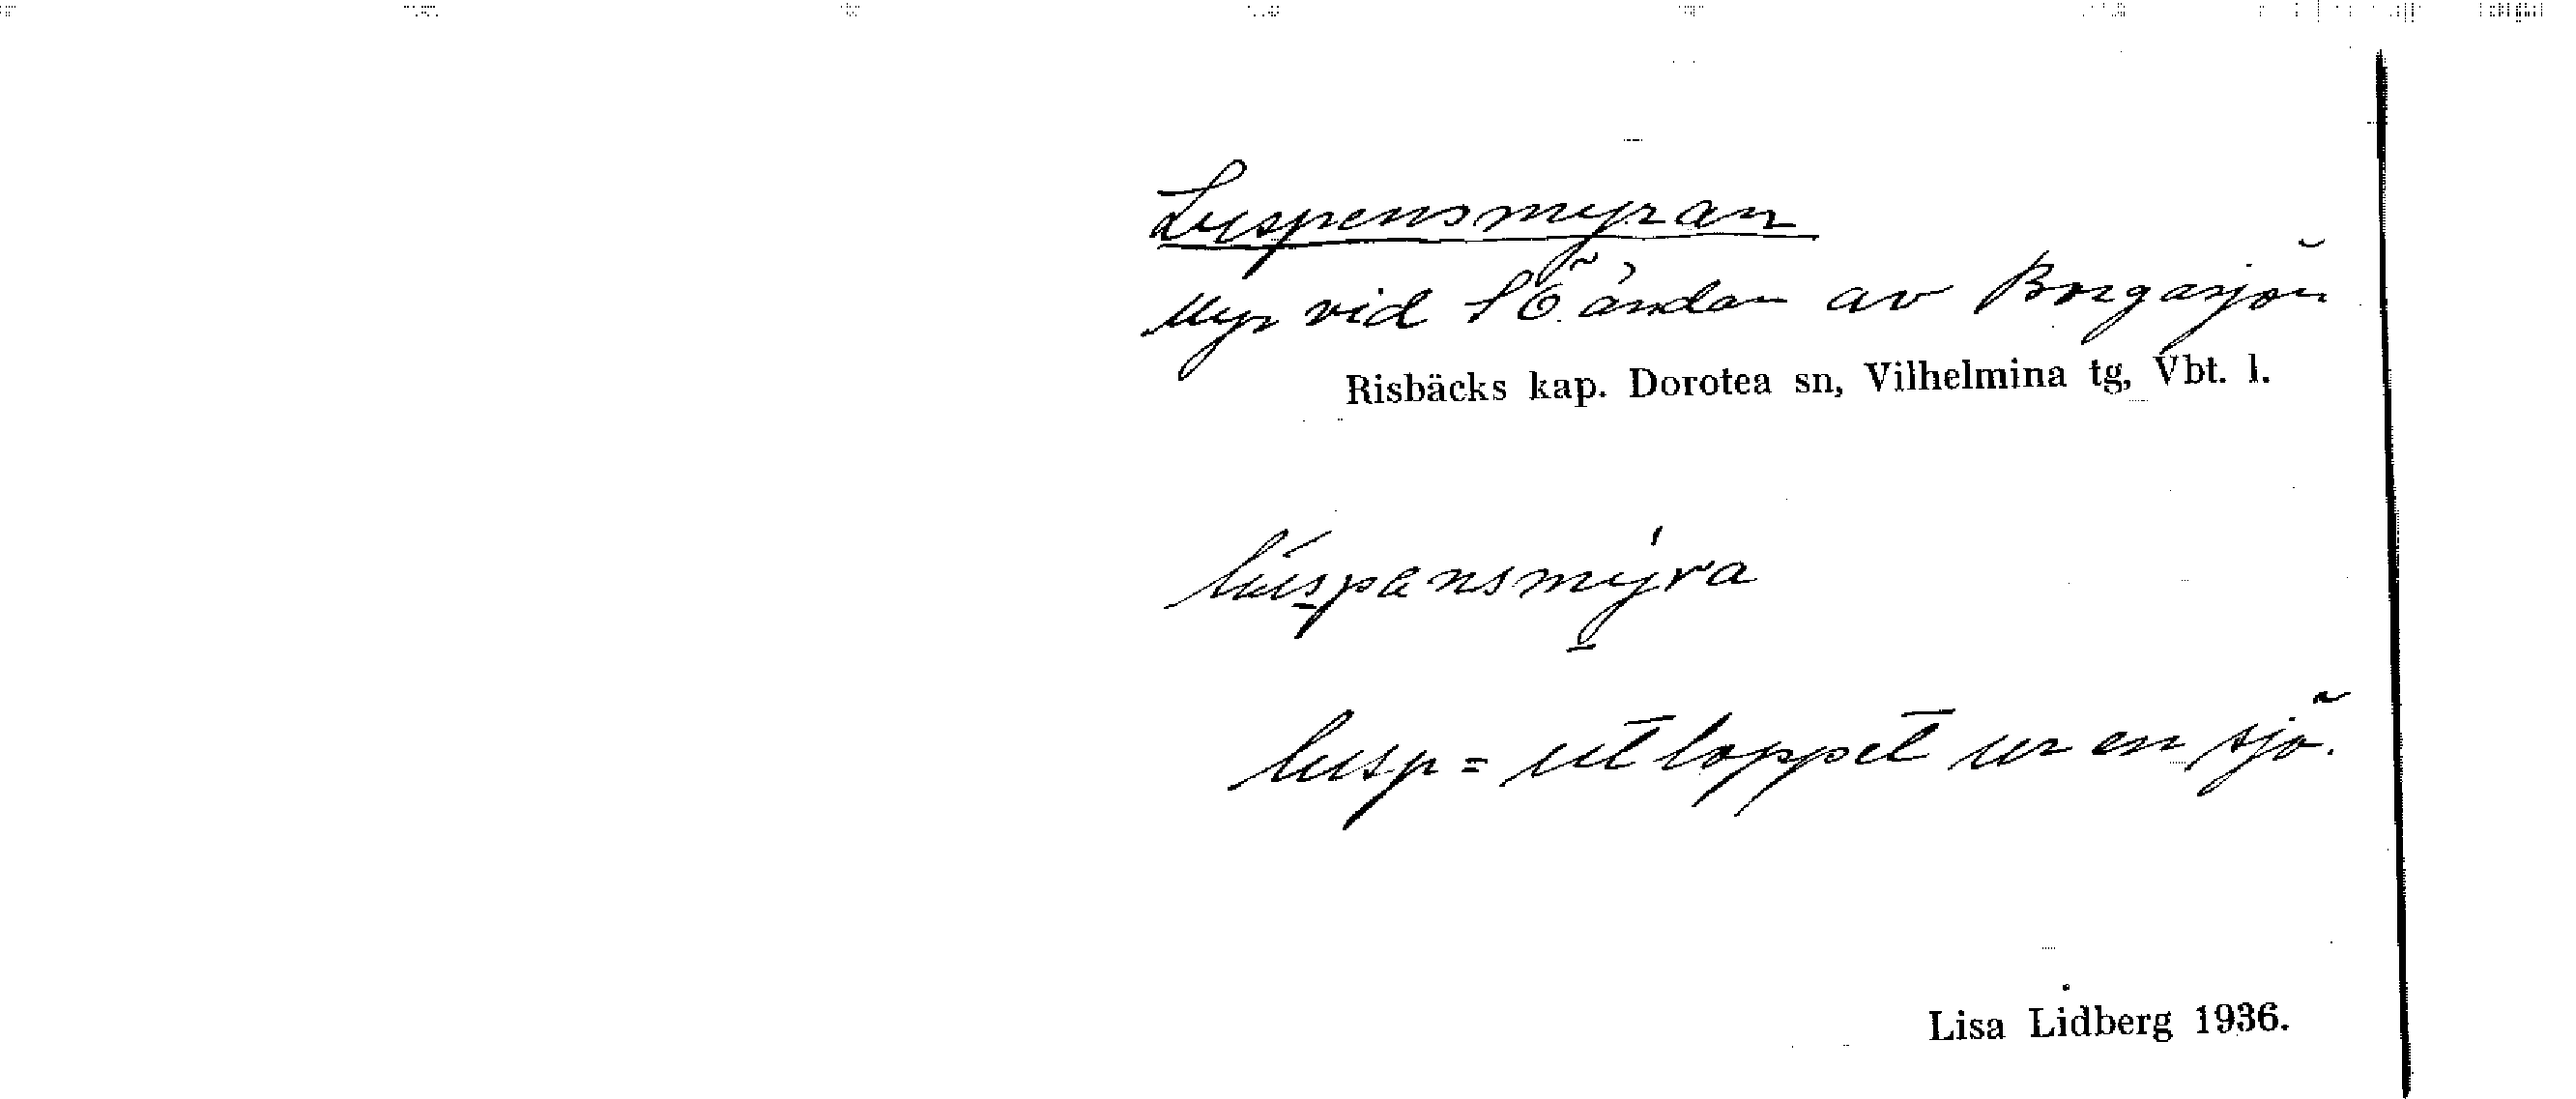 Luspensmyran
Myr vid SÖ. ändan av Borgasjön
Risbäcks kap. Dorotea sn, Vilhelmina tg, Vbt. l.
lúspansmýra
lusp = utloppet ur en sjö.
Lisa Lidberg 1936.